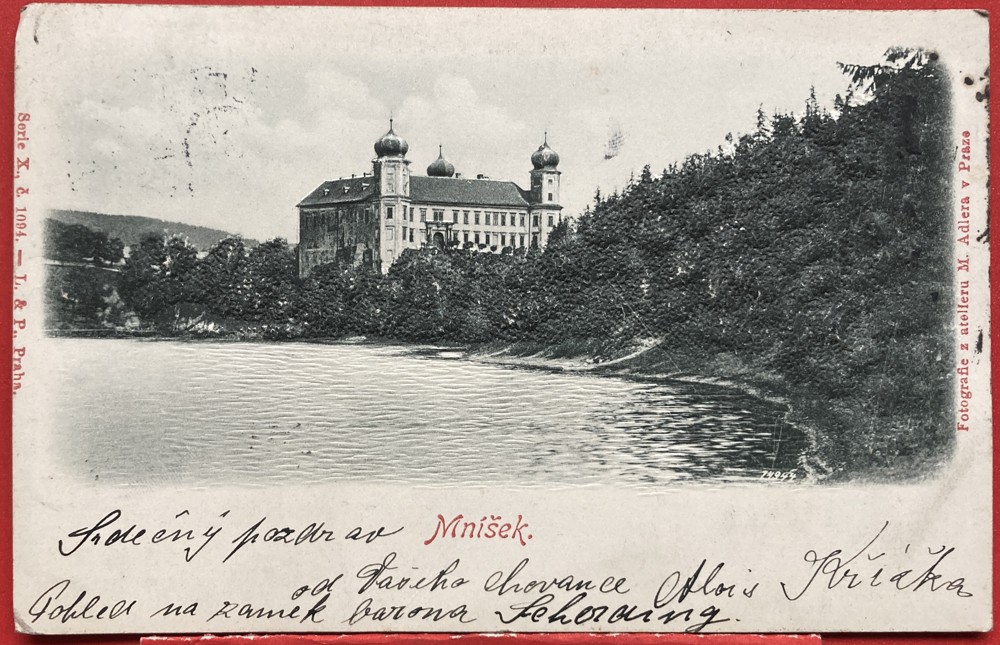 Serie X., č. 1094. — L. & P., Praha.
Fotografie z atelieru M. Adlera v Praze
Srdečný pozdrav
Mníšek.
od Vašeho chovance Alois Křičáka
Pohled na zamek barona